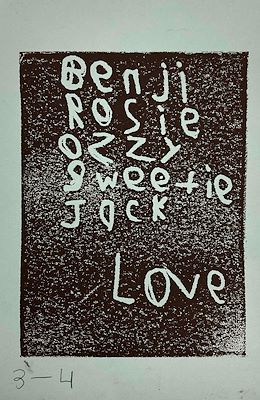 Benji
Rosie
Ozzy
Sweetie
Jack
Love
3-4